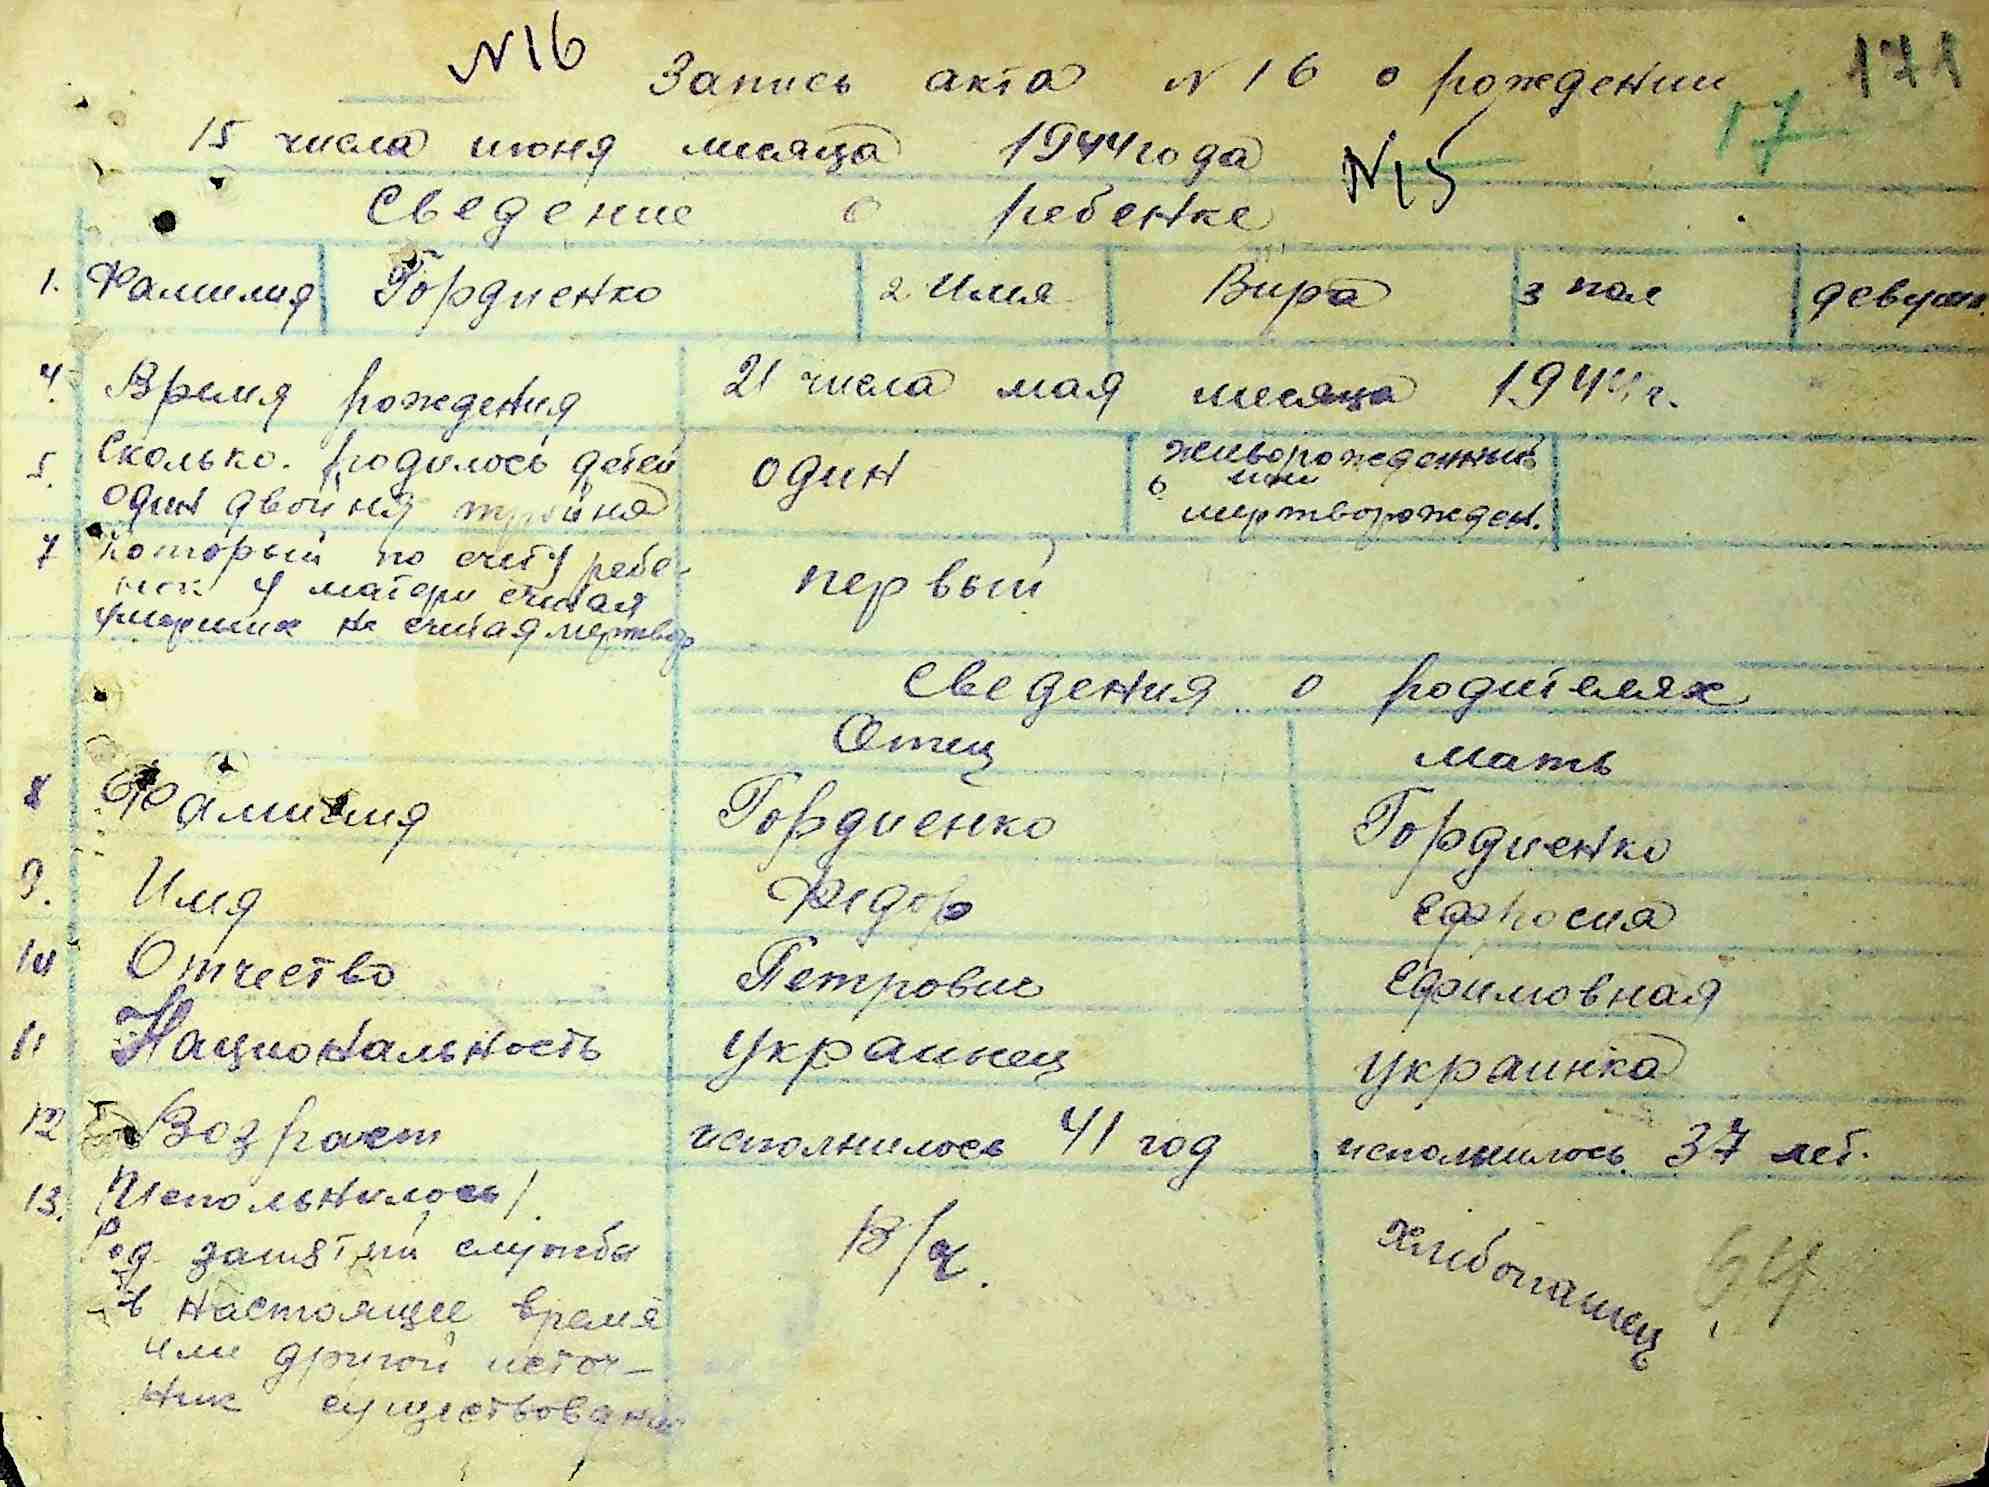 N16
Запись акта N 16 о рождении 171
17
15 числа июня месяца 1944 года N15
Сведение о ребенке
1. Фамилия Гордиенко 2. Имя Вира 3 пол девушк.
4. Время рождения 21 числа мая месяца 1944 г.
5. Сколько родилось детей один 6 живорожденный
один двойня тройня или
мертворожден.
7 который по счету ребе- первый
нок у матери считая
умерших не считая мертвор
Сведения о родителях
Отец мать
8 Фамилия Гордиенко Гордиенко
9. Имя Федор Ефросия
10 Отчество Петрович Ефимовная
11 Национальность украинец украинка
12 Возраст исполнилось 41 год исполнилось 37 лет.
/Испольнилось/
13. Род занятий служба В/ч. хлибопашец 64
в настоящее время
или другой источ-
ник существования